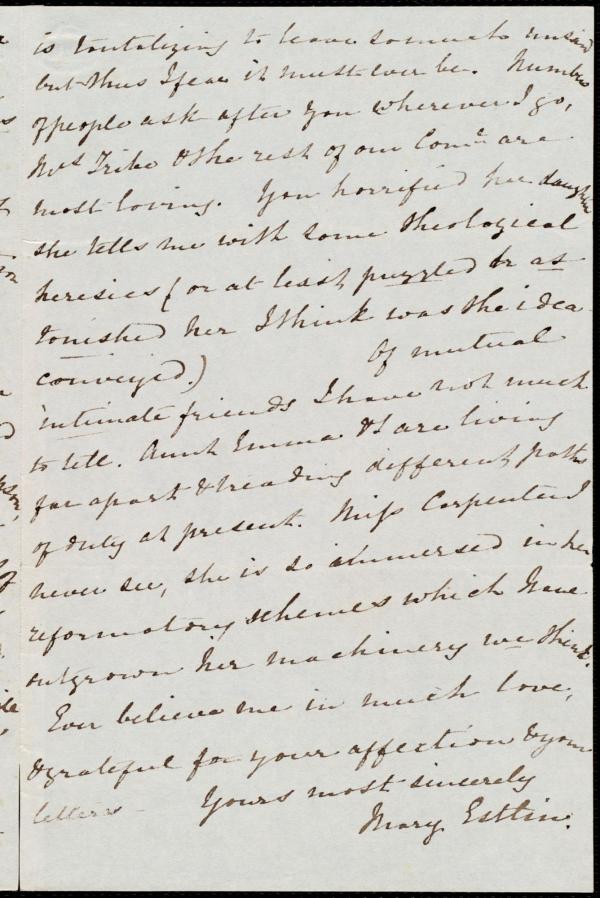 is tantalizing to leave so much unsaid
but thus I fear it must ever be. Numbers
of people ask after you wherever I go,
Mrs Tribe & the rest of our Comee are
most loving. You horrified her daughter
she tells me with some theological
heresies (or at least puzzled or as
tonished her I think was the idea
conveyed.) Of mutual
intimate friends I have not much
to tell. Aunt Emma & I are living
far apart & treading different paths
of duty at present. Miss Carpenter I
never see, she is so immersed in her
reformatory schemes which have
outgrown her machinery we think.
Ever believe me in much love,
& grateful for your affection & your
letters – Yours most sincerely
Mary Estlin.